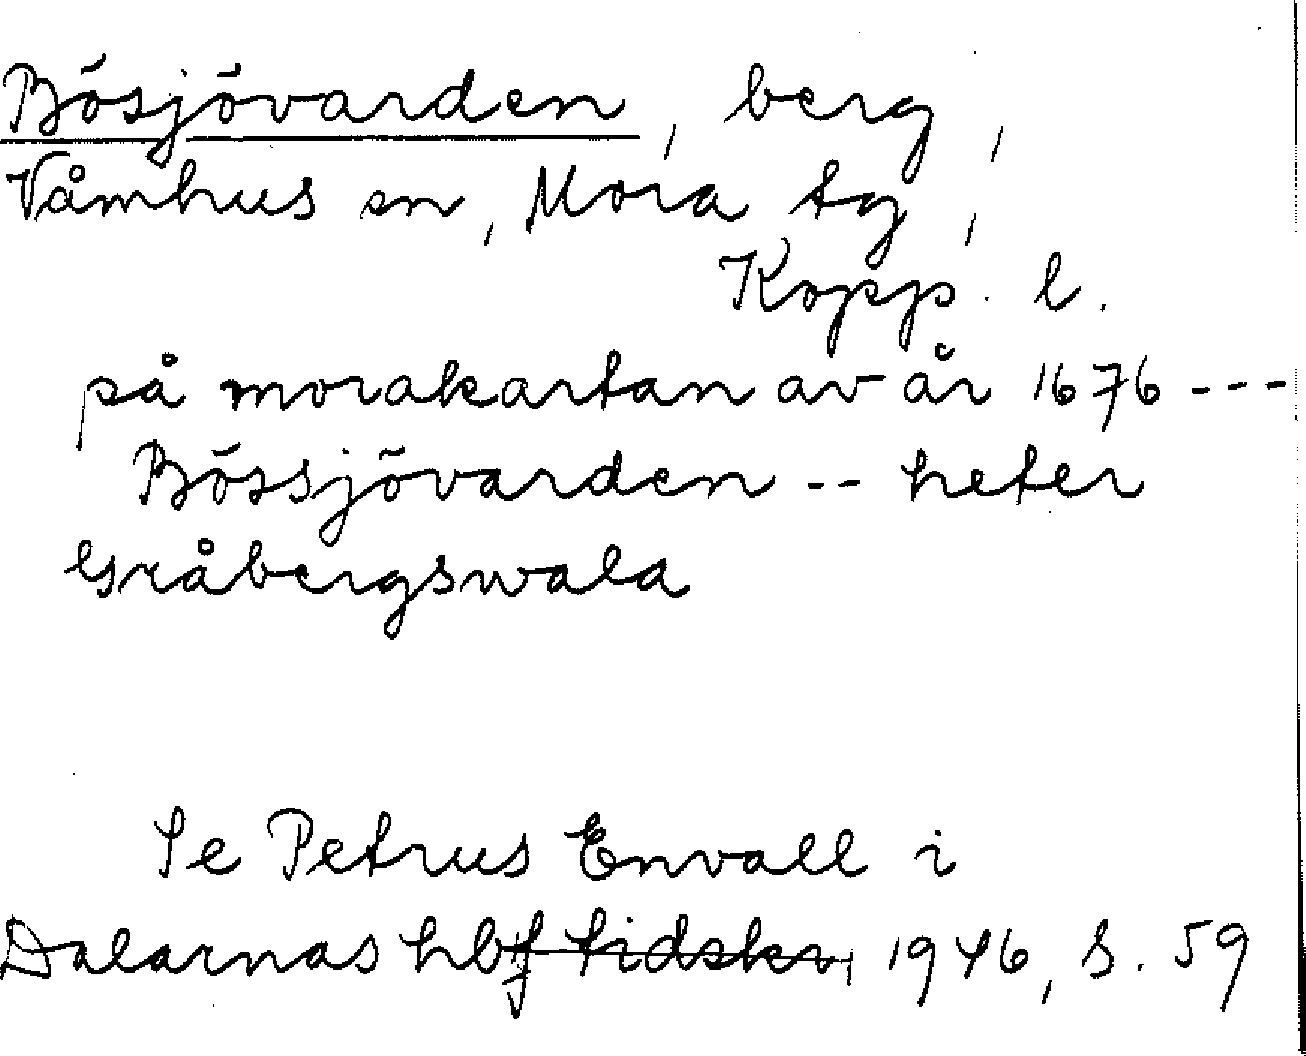 Bösjövarden, berg,
Våmhus sn, Mora tg,
Kopp. l.
på morakartan av år 1676 ---
Bössjövarden -- heter
Gråbergswala
Se Petrus Envall i
Dalarnas hbf tidskr, 1946, S. 59